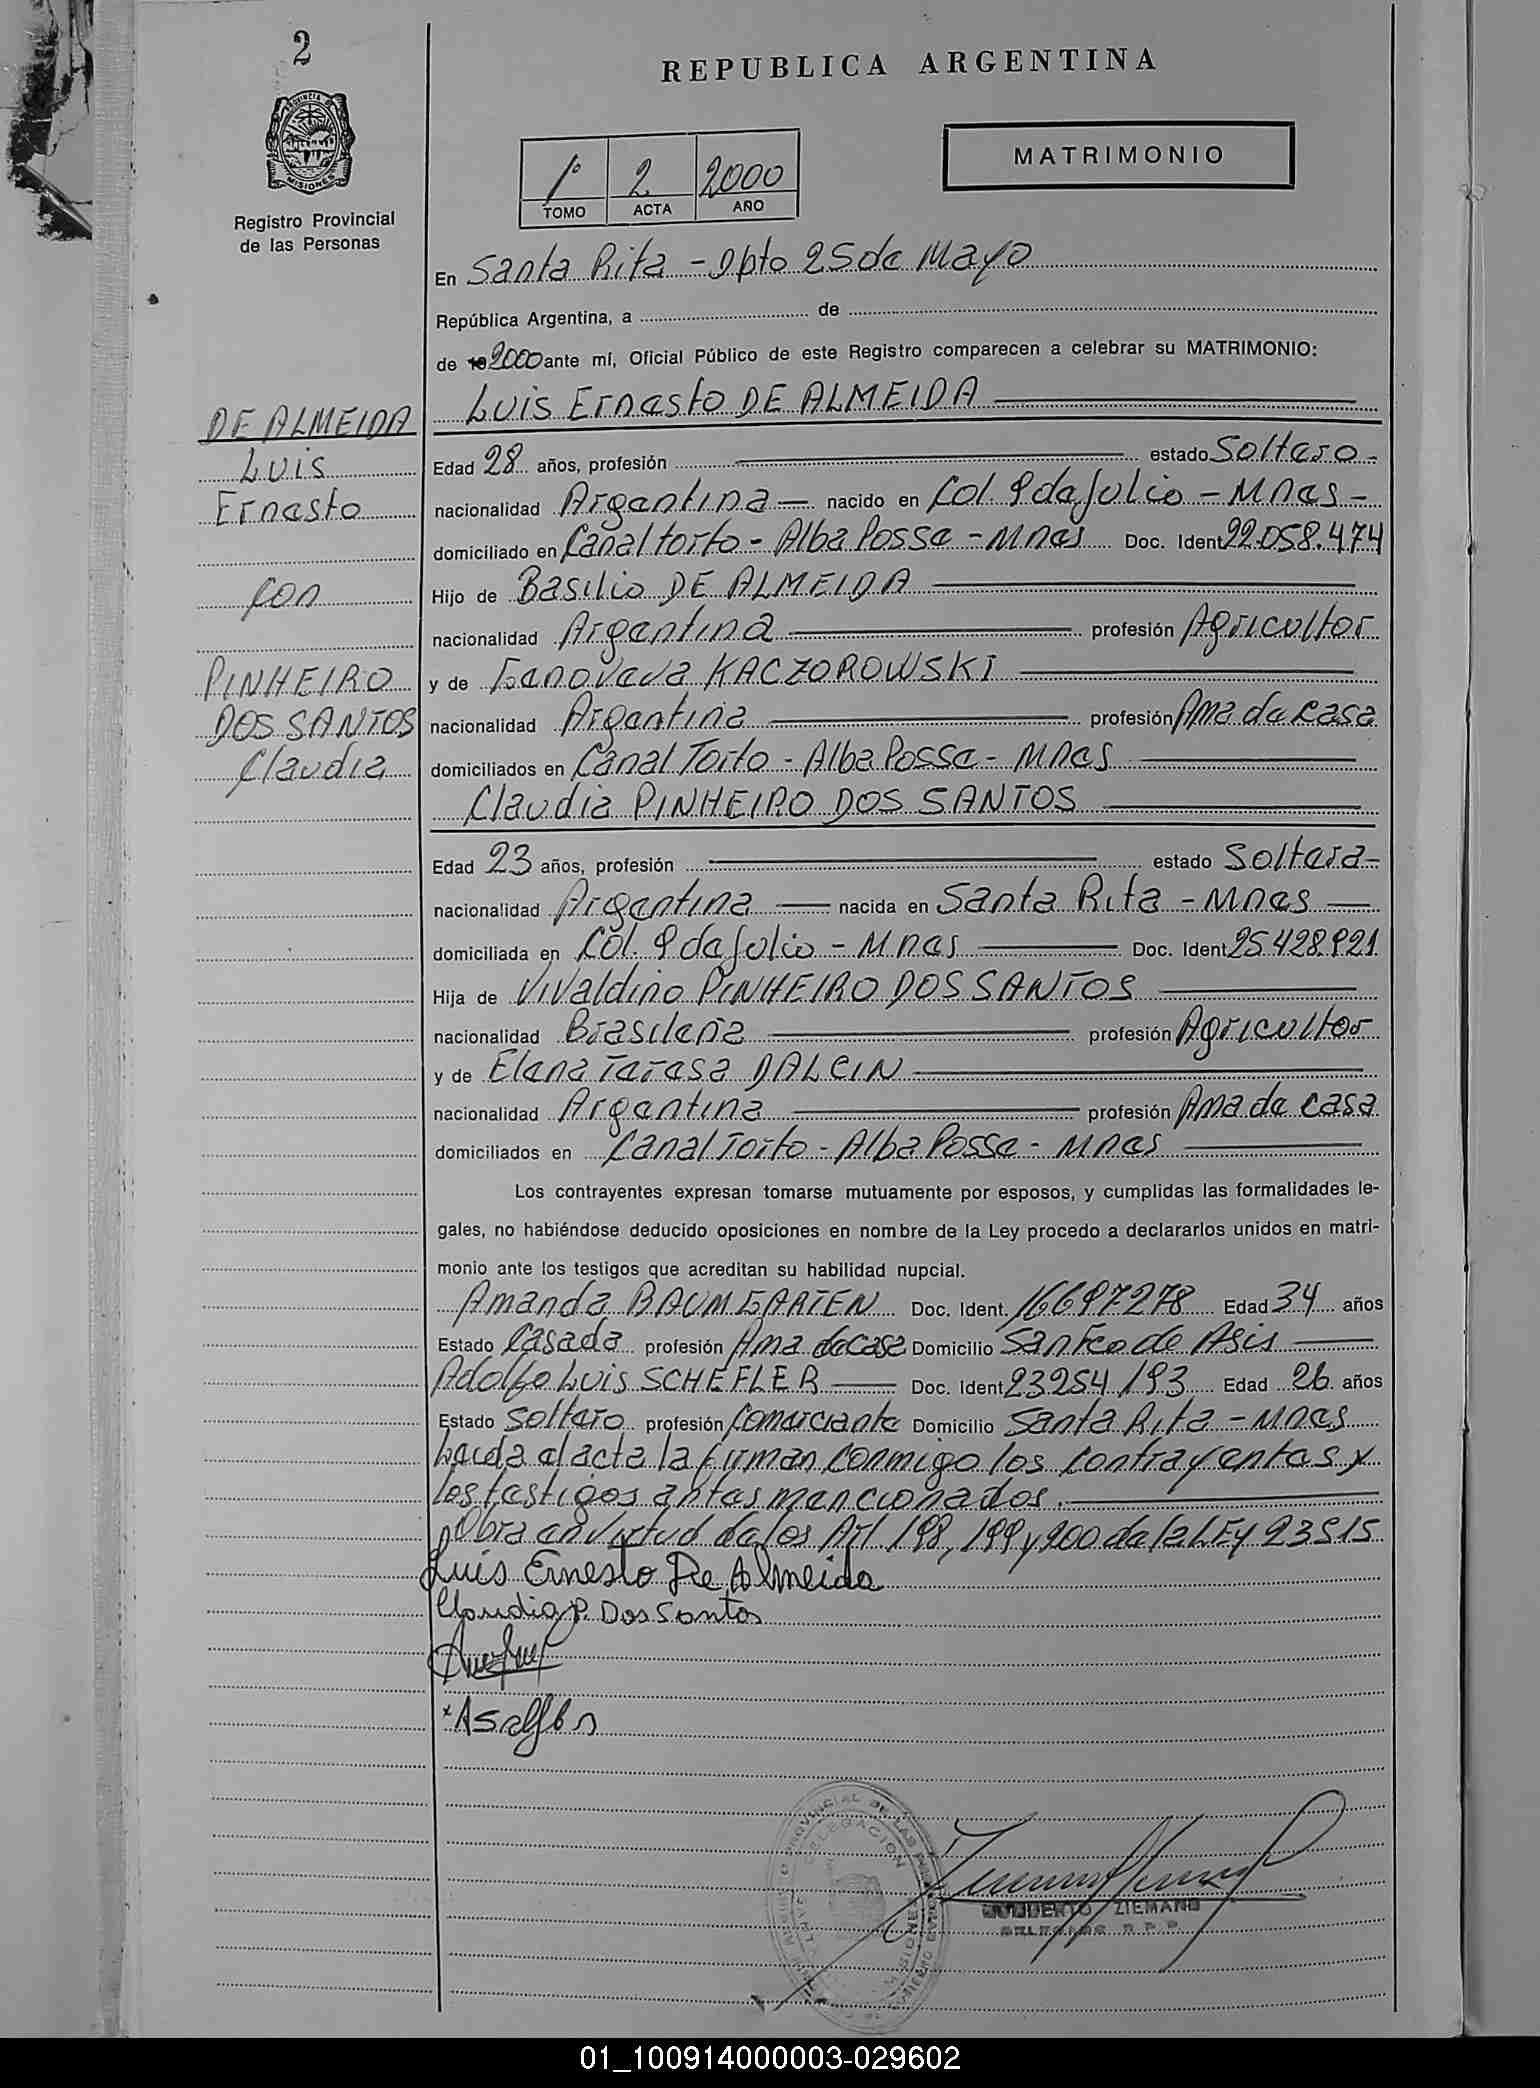 2
REPUBLICA ARGENTINA
PROVINCIA DE MISIONES
Registro Provincial
de las Personas
1º 2 2000
TOMO ACTA AÑO
MATRIMONIO
En Santa Rita - Dpto 25 de Mayo
República Argentina, a de
de 19 2000 ante mí, Oficial Público de este Registro comparecen a celebrar su MATRIMONIO:
Luis Ernesto DE ALMEIDA
DE ALMEIDA
Luis
Ernesto
con
PINHEIRO
DOS SANTOS
Claudia
Edad 28 años, profesión estado Soltero -
nacionalidad Argentina - nacido en Col. 9 de Julio - Mnes -
domiciliado en Canal torto - Alba Posse - Mnes Doc. Ident 22.058.474
Hijo de Basilio DE ALMEIDA
nacionalidad Argentina profesión Agricultor
y de Genoveva KACZOROWSKI
nacionalidad Argentina profesión Ama de casa
domiciliados en Canal Torto - Alba Posse - Mnes
Claudia PINHEIRO DOS SANTOS
Edad 23 años, profesión estado Soltera -
nacionalidad Argentina - nacida en Santa Rita - Mnes
domiciliada en Col. 9 de Julio - Mnes Doc. Ident 25.428.921
Hija de Vivaldino PINHEIRO DOS SANTOS
nacionalidad Brasileña profesión Agricultor
y de Elena Teresa DALCIN
nacionalidad Argentina profesión Ama de casa
domiciliados en Canal Torto - Alba Posse - Mnes
Los contrayentes expresan tomarse mutuamente por esposos, y cumplidas las formalidades le-
gales, no habiéndose deducido oposiciones en nombre de la Ley procedo a declararlos unidos en matri-
monio ante los testigos que acreditan su habilidad nupcial.
Amanda BAUMGARTEN Doc. Ident. 16697278 Edad 34 años
Estado Casada profesión Ama de casa Domicilio San Fco de Asis
Adolfo Luis SCHEFLER Doc. Ident 23254193 Edad 26 años
Estado Soltero profesión Comerciante Domicilio Santa Rita - Mnes
Leida el acta la firman conmigo los contrayentes y
los testigos antes mencionados.
Obra en virtud de los Art 198, 199 y 200 de la LEy 23515
Luis Ernesto De Almeida
Claudia P. Dos Santos
HUMBERTO ZIEMANN
DELEGADO R.P.P.
01_100914000003-029602